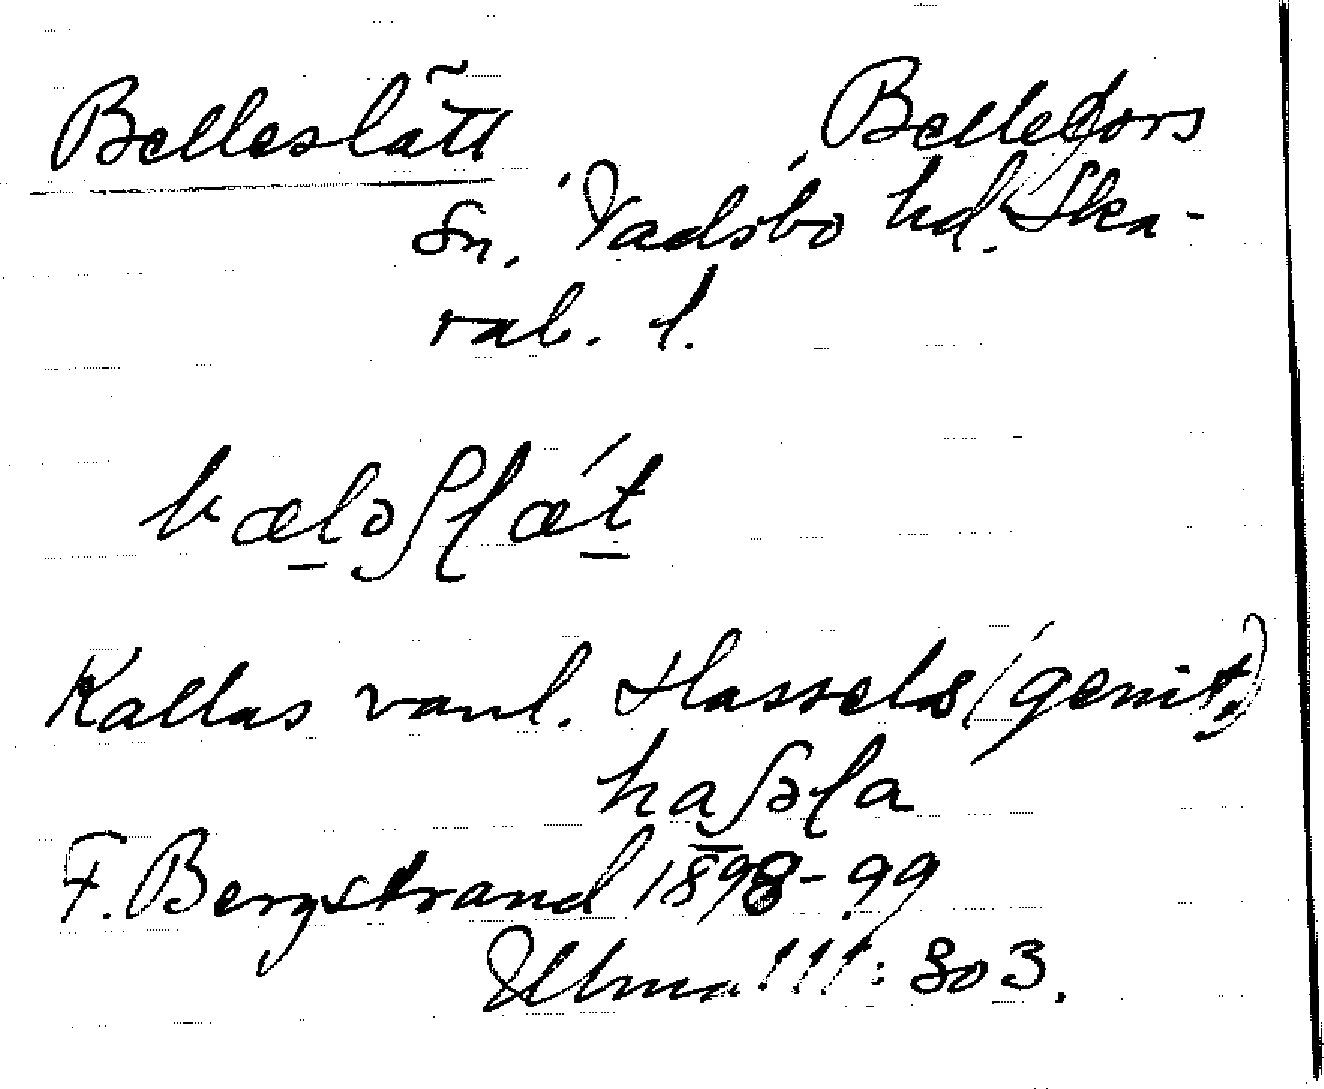 Belleslätt Bellefors
sn. Vadsbo hd. Ska-
rab. l.
bæləslǽt
Kallas vanl. Hassels (genit.)
hasəla
F. Bergstrand 1898-99
Ulma 111:803.